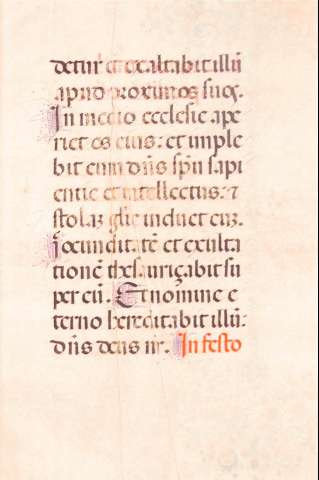 detur et exaltabit illū
apud proximos suos.
In medio ecclesie ape
riet os eius: et imple
bit eum dn̄s spū sapi
entie et intellectus: ⁊
stolaʒ glīe induet eum.
Jocundita tē et exulta
tionē thesauriçabit su
per eū. Et nomine e
terno hereditabit illū:
dn̄s deus nr̄. In festo